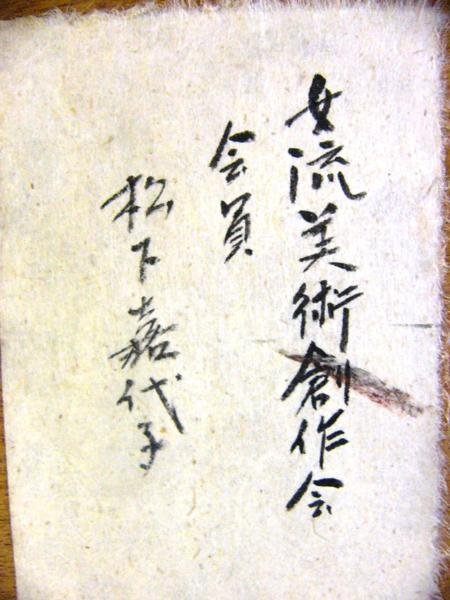 女流美術創作会
会員
松下嘉代子